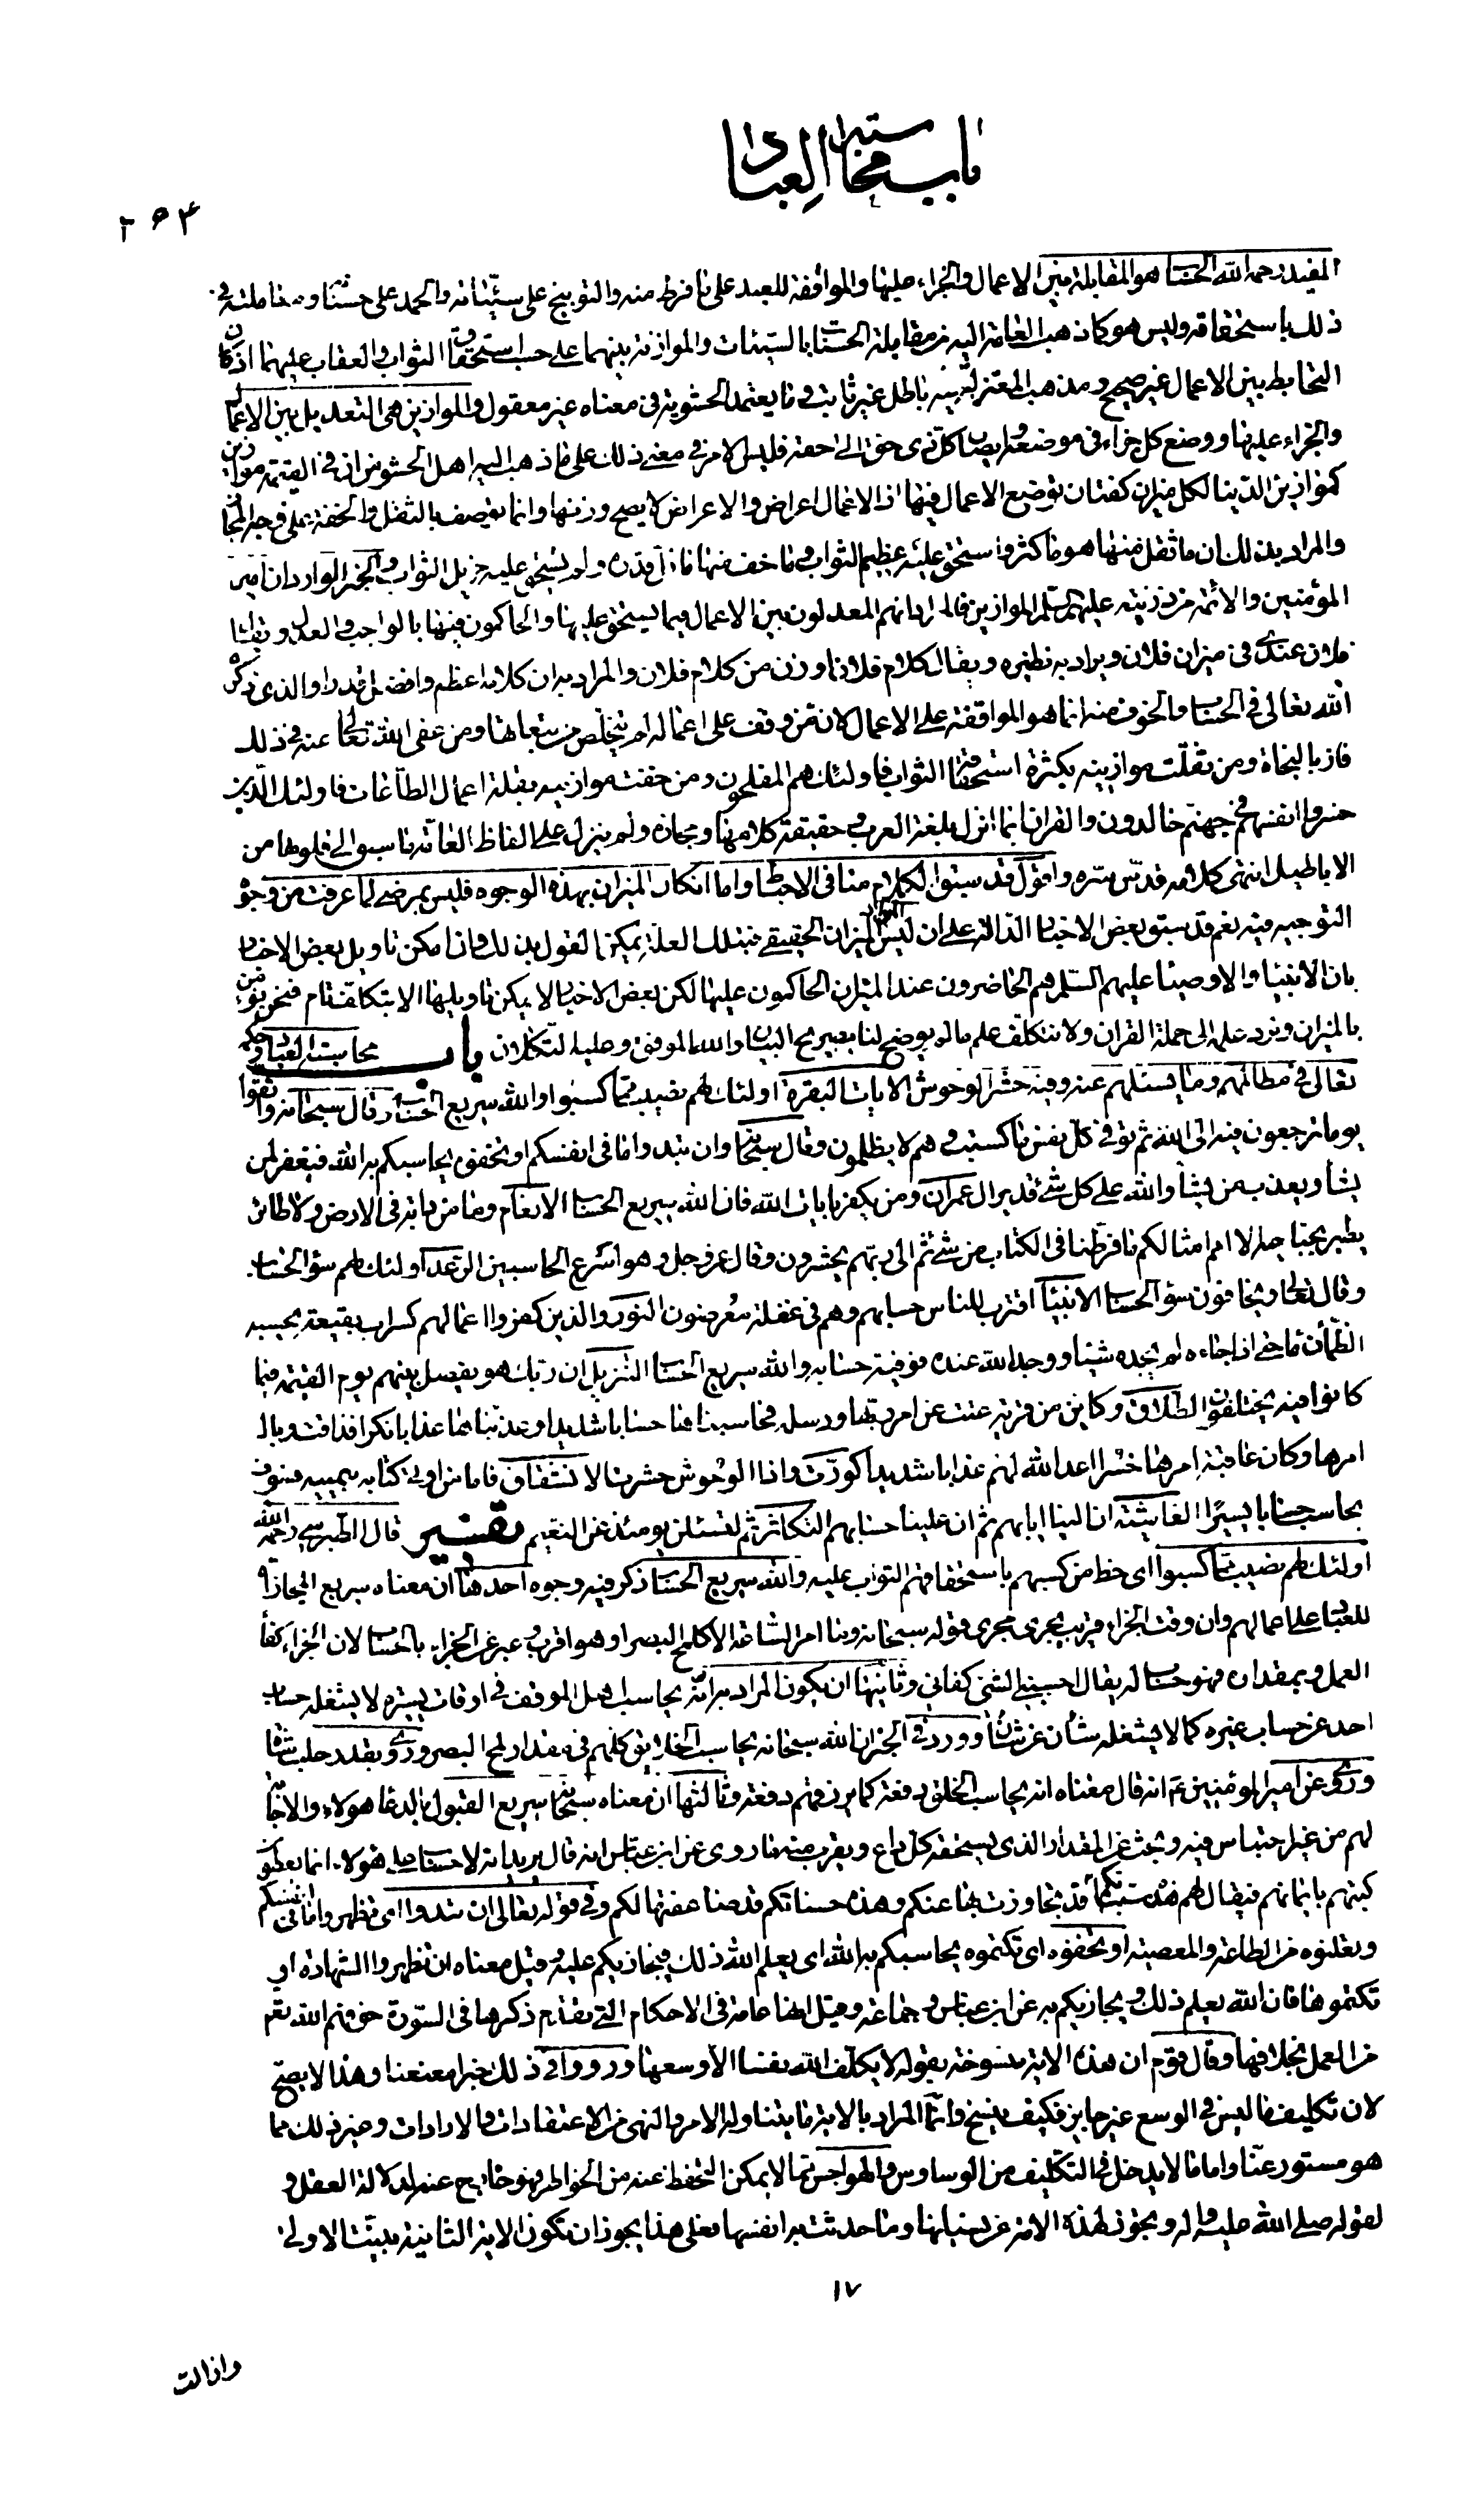 باب محاسبة العباد
٢٦٤
المفيد رحمه الله الحساب هو المقابلة بين الاعمال والجزاء عليها والمواقفة للعبد على ما فرط منه والتوبيخ على سيئاته والحمد على حسناته ومعاملته في
ذلك باستحقاقه وليس هو كما ذهب العامة اليه من مقابلة الحسنات بالسيئات والموازنة بينهما على حسب استحقاق الثواب والعقاب عليهما اذ كان
التحابط بين الاعمال غير صحيح ومذهب المعتزلة فيه باطل غير ثابت وما يعتمد الحشوية في معناه غير معقول والموازين هي التعديل بين الاعمال
والجزاء عليها ووضع كل جزاء في موضعه وايصال كل ذي حق الى حقه فليس الامر في معنى ذلك على ما ذهب اليه اهل الحشو من ان في القيمة موازين
كموازين الدنيا لكل ميزان كفتان توضع الاعمال فيها اذ الاعمال اعراض والاعراض لا يصح وزنها وانما توصف بالثقل والخفة على وجه المجاز
والمراد بذلك ان ما ثقل منها هو ما كثر واستحق عليه عظيم الثواب وما خف منها ما قل قدره ولم يستحق عليه جزيل الثواب والخبر الوارد ان امير
المؤمنين والائمة من ذريته عليهم السلم الموازين فالمراد انهم المعدلون بين الاعمال فيما يستحق عليها والحاكمون فيها بالواجب والعدل ويقال
فلان عندي في ميزان فلان ويراد به نظيره ويقال كلام فلان اوزن من كلام فلان والمراد به ان كلامه اعظم وافضل قدرا والذي ذكره
الله تعالى في الحساب والخوف منه انما هو المواقفة على الاعمال لان من وقف على اعماله لم يتخلص من تبعاتها ومن عفى الله تعالى عنه في ذلك
فاز بالنجاة ومن ثقلت موازينه بكثرة استحقاقه الثواب فاولئك هم المفلحون ومن خفت موازينه بقلة اعمال الطاعات فاولئك الذين
خسروا انفسهم في جهنم خالدون والقران انما انزل بلغة العرب وحقيقة كلامها ومجازه ولم ينزل على الفاظ العامة وما سبق الى قلوبها من
الاباطيل انتهى كلامه قدس سره واقول قد سبق الكلام منا في الاحباط واما انكار الميزان بهذه الوجوه فليس بمرضي لما عرفت من وجوه
التوجيه فيه نعم قد سبق بعض الاخبار الدالة على ان ليس المراد الميزان الحقيقي فبتلك العلة يمكن القول بذلك وان امكن تاويل بعض الاخبار
بان الانبياء والاوصياء عليهم السلم هم الحاضرون عند الميزان الحاكمون عليها لكن بعض الاخبار لا يمكن تاويلها الا بتكلف تام فنحن نؤمن
بالميزان ونرد علمه الى حملة القران ولا نتكلف علم ما لم يوضح لنا بصريح البيان والله الموفق وعليه التكلان باب محاسبة العباد وحكمه
تعالى في مظالمهم وما يسئلهم عنه وفيه حشر الوحوش الايات البقرة اولئك لهم نصيب مما كسبوا والله سريع الحساب وقال سبحانه واتقوا
يوما ترجعون فيه الى الله ثم توفى كل نفس ما كسبت وهم لا يظلمون وقال سبحانه وان تبدوا ما في انفسكم او تخفوه يحاسبكم به الله فيغفر لمن
يشاء ويعذب من يشاء والله على كل شئ قدير ال عمران ومن يكفر بايات الله فان الله سريع الحساب الانعام وما من دابة في الارض ولا طائر
يطير بجناحيه الا امم امثالكم ما فرطنا في الكتاب من شئ ثم الى ربهم يحشرون وقال عز وجل وهو اسرع الحاسبين الرعد اولئك لهم سوء الحساب
وقال تعالى ويخافون سوء الحساب الانبياء اقترب للناس حسابهم وهم في غفلة معرضون النور والذين كفروا اعمالهم كسراب بقيعة يحسبه
الظمأن ماء حتى اذا جاءه لم يجده شيئا ووجد الله عنده فوفيه حسابه والله سريع الحساب التنزيل ان ربك هو يفصل بينهم يوم القيمة فيما
كانوا فيه يختلفون الطلاق وكاين من قرية عتت عن امر ربها ورسله فحاسبناها حسابا شديدا وعذبناها عذابا نكرا فذاقت وبال
امرها وكان عاقبة امرها خسرا اعد الله لهم عذابا شديدا كورت واذا الوحوش حشرت الانشقاق فاما من اوتي كتابه بيمينه فسوف
يحاسب حسابا يسيرا الغاشية ان الينا ايابهم ثم ان علينا حسابهم التكاثر ثم لتسئلن يومئذ عن النعيم تفسير قال الطبرسي رحمه الله
اولئك لهم نصيب مما كسبوا اى حظ من كسبهم باستحقاقهم الثواب عليه والله سريع الحساب ذكر فيه وجوه احدها ان معناه سريع المجازاة
للعباد على اعمالهم وان وقت الجزاء قريب يجرى مجرى قوله سبحانه وما امر الساعة الا كلمح البصر او هو اقرب وعبر عن الجزاء بالحساب لان الجزاء كفاء
العمل وبمقداره فهو حساب له يقال احسبني الشئ كفاني وثانيها ان يكون المراد به انه يحاسب اهل الموقف في اوقات يسيرة لا يشغله حساب
احد عن حساب غيره كما لا يشغله شأن عن شأن وورد في الخبر ان الله سبحانه يحاسب الخلايق كلهم في مقدار لمح البصر وروى بقدر حلب شاة
وروى عن امير المؤمنين ع انه قال معناه انه يحاسب الخلق دفعة كما يرزقهم دفعة وثالثها ان معناه سبحانه سريع القبول لدعاء هولاء والاجابة
لهم من غير احتباس فيه وبحث عن المقدار الذي يستحقه كل داع ويقرب منه ما روى عن ابن عباس انه قال يريد انه لا حساب على هولاء انما يعطون
كتبهم بايمانهم فيقال لهم هذه سيئاتكم قد تجاوزت بها عنكم وهذه حسناتكم قد ضاعفتها لكم وفي قوله تعالى ان تبدوا اى تظهروا ما في انفسكم
وتعلنوه من الطاعة والمعصية او تخفوه اى تكتموه يحاسبكم به الله اى يعلم الله ذلك فيجازيكم عليه وقيل معناه ان تظهروا الشهادة او
تكتموها فان الله يعلم ذلك ويجازيكم به عن ابن عباس وجماعة وقيل انها عامة في الاحكام التي تقدم ذكرها في السورة خوفهم الله تعم
من العمل بخلافها وقال قوم ان هذه الاية منسوخة بقوله لا يكلف الله نفسا الا وسعها ورووا في ذلك خبرا معنعنا وهذا لا يصح
لان تكليف ما ليس في الوسع غير جايز فكيف ينسخ وانما المراد بالاية ما يتناوله الامر والنهي من الاعتقادات والارادات وغير ذلك مما
هو مستور عنا واما ما لا يدخل في التكليف من الوساوس والهواجس مما لا يمكن التحفظ عنه من الخواطر فهو خارج عنه لدلالة العقل و
لقوله صلى الله عليه واله وتجوز لهذه الامة عن نسيانها وما حدثت به انفسها فعلى هذا يجوز ان تكون الاية الثانية بينت الاولى
١٧
وازالت